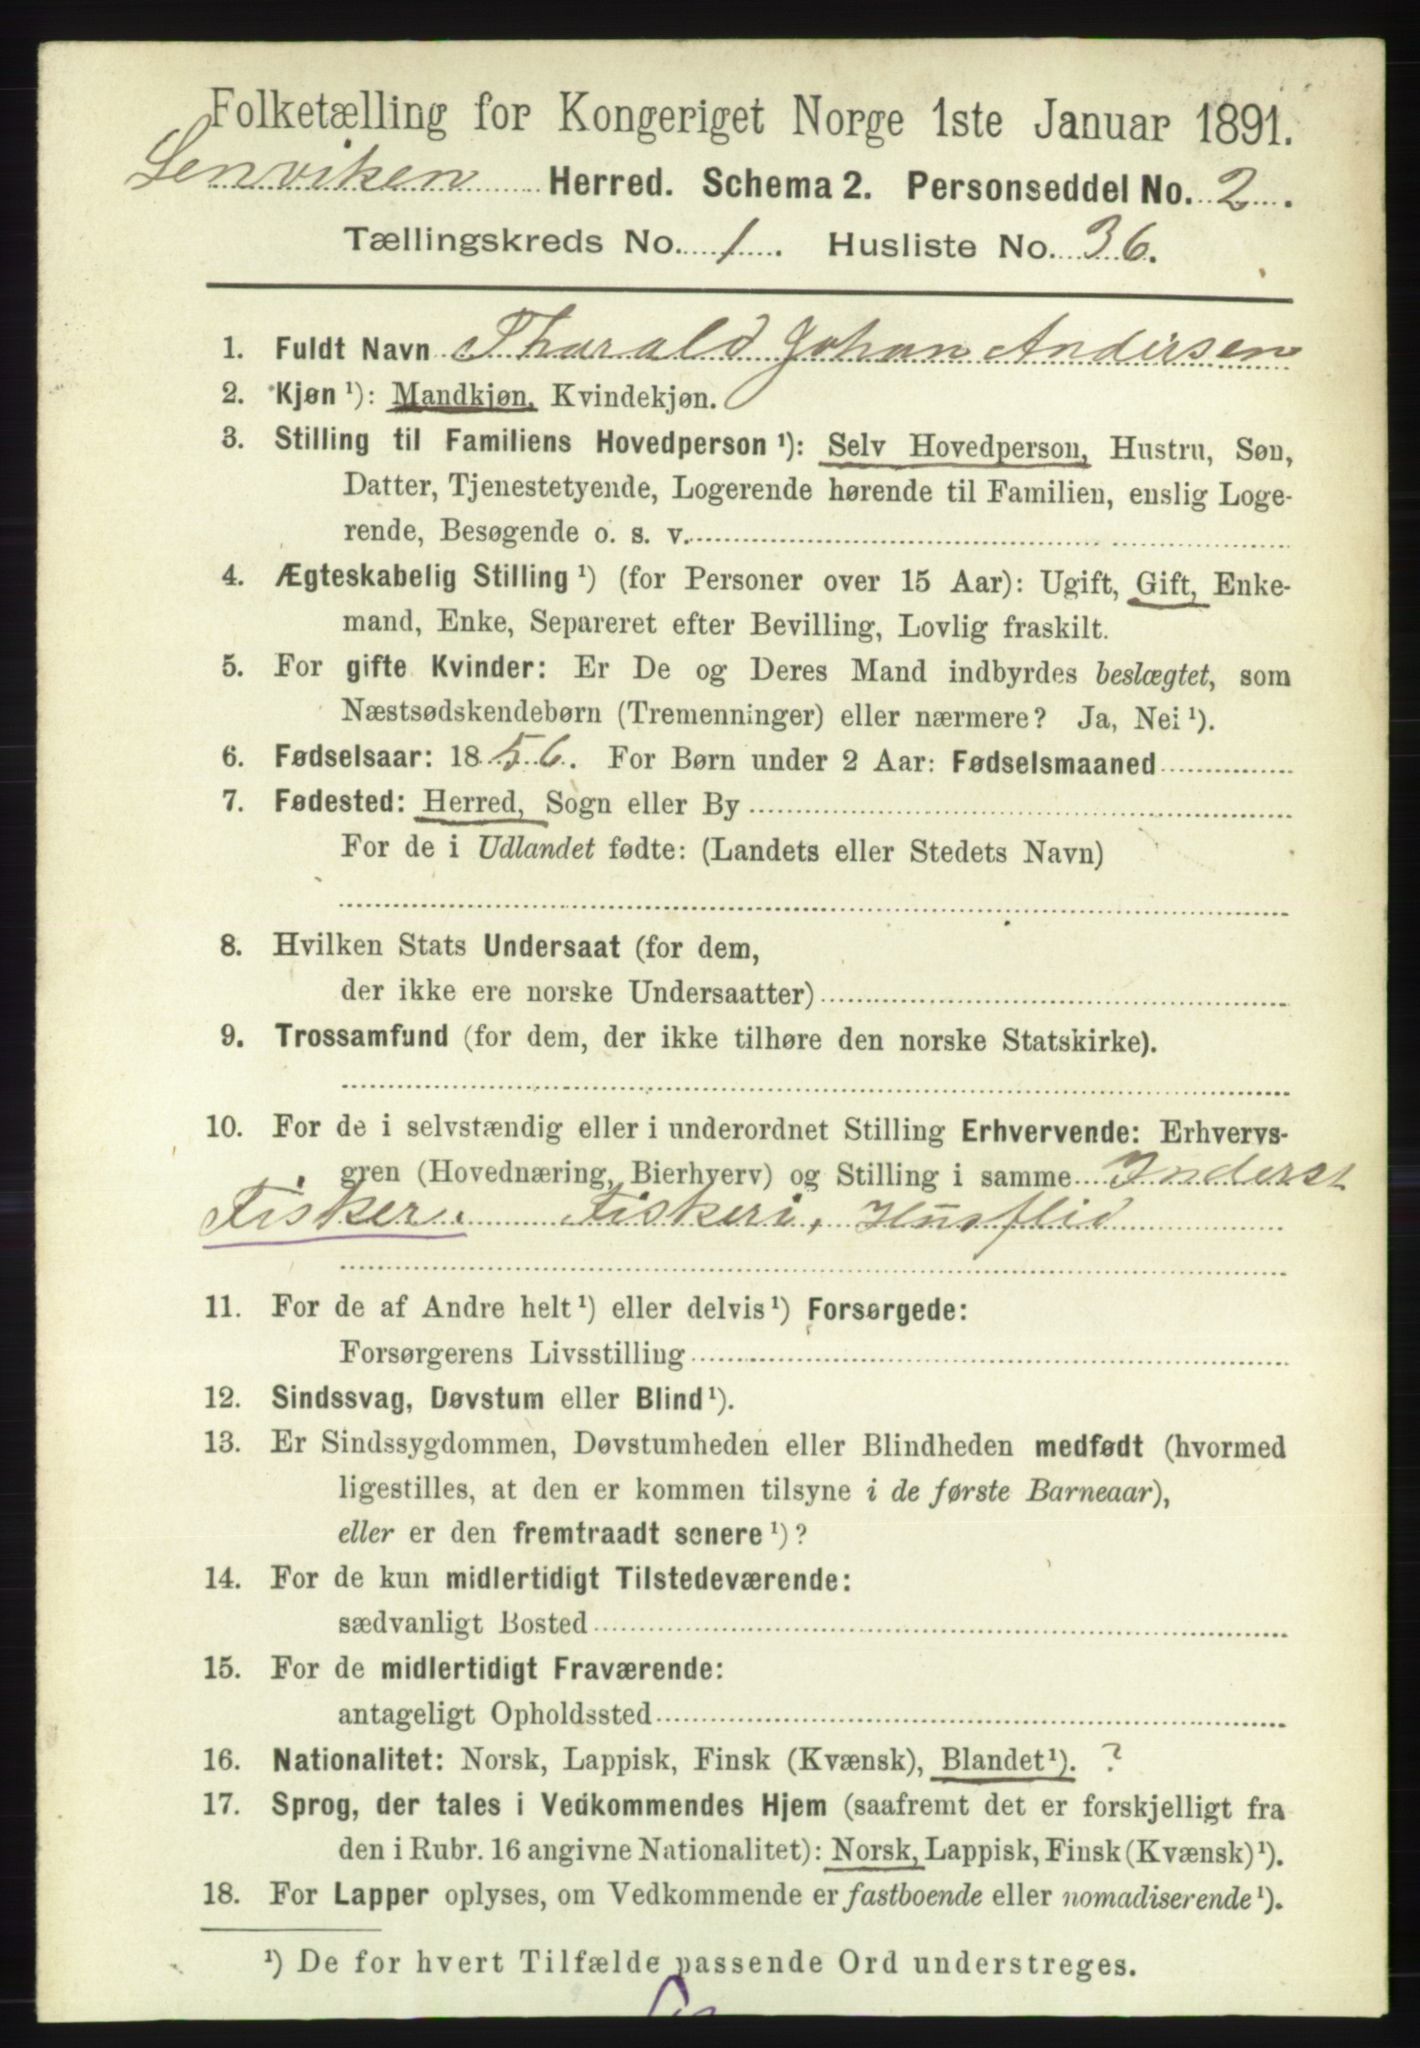 Folketælling for Kongeriget Norge 1ste Januar 1891.
Lenviken Herred. Schema 2. Personseddel No. 2.
Tællingskreds No. 1. Husliste No. 36.
1. Fuldt Navn Tharald Johan Andersen
2. Kjøn¹): Mandkjøn, Kvindekjøn.
3. Stilling til Familiens Hovedperson¹): Selv Hovedperson, Hustru, Søn,
Datter, Tjenestetyende, Logerende hørende til Familien, enslig Loge-
rende, Besøgende o. s. v.
4. Ægteskabelig Stilling¹) (for Personer over 15 Aar): Ugift, Gift, Enke-
mand, Enke, Separeret efter Bevilling, Lovlig fraskilt.
5. For gifte Kvinder: Er De og Deres Mand indbyrdes beslægtet, som
Næstsødskendebørn (Tremenninger) eller nærmere? Ja, Nei¹).
6. Fødselsaar: 1856. For Børn under 2 Aar: Fødselsmaaned
7. Fødested: Herred, Sogn eller By
For de i Udlandet fødte: (Landets eller Stedets Navn)
8. Hvilken Stats Undersaat (for dem,
der ikke ere norske Undersaatter)
9. Trossamfund (for dem, der ikke tilhøre den norske Statskirke).
10. For de i selvstændig eller i underordnet Stilling Erhvervende: Erhvervs-
gren (Hovednæring, Bierhverv) og Stilling i samme Inderst
Fisker. Fiskeri, Husflid
11. For de af Andre helt¹) eller delvis¹) Forsørgede:
Forsørgerens Livsstilling
12. Sindssvag, Døvstum eller Blind¹).
13. Er Sindssygdommen, Døvstumheden eller Blindheden medfødt (hvormed
ligestilles, at den er kommen tilsyne i de første Barneaar),
eller er den fremtraadt senere¹)?
14. For de kun midlertidigt Tilstedeværende:
sædvanligt Bosted
15. For de midlertidigt Fraværende:
antageligt Opholdssted
16. Nationalitet: Norsk, Lappisk, Finsk (Kvænsk), Blandet¹). ?
17. Sprog, der tales i Vedkommendes Hjem (saafremt det er forskjelligt fra
den i Rubr. 16 angivne Nationalitet): Norsk, Lappisk, Finsk (Kvænsk)¹).
18. For Lapper oplyses, om Vedkommende er fastboende eller nomadiserende¹).
¹) De for hvert Tilfælde passende Ord understreges.